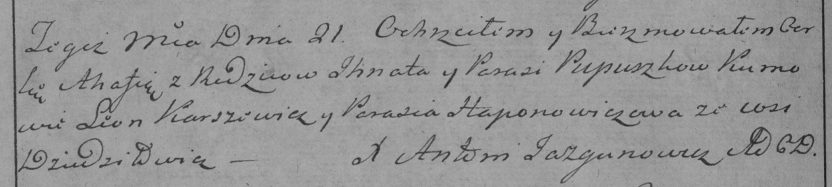 Tegoż Mca Dnia 21. Ochrzciłem y Bierzmowałem Cor
kę Ahafię z Rodzicow Ihnata y Parasi Papuszkow Kumo
wie Leon Karszewicz y Parasia Haponowiczowa ze wsi
Dziedziłowicz — X Antoni Jazgunowicz